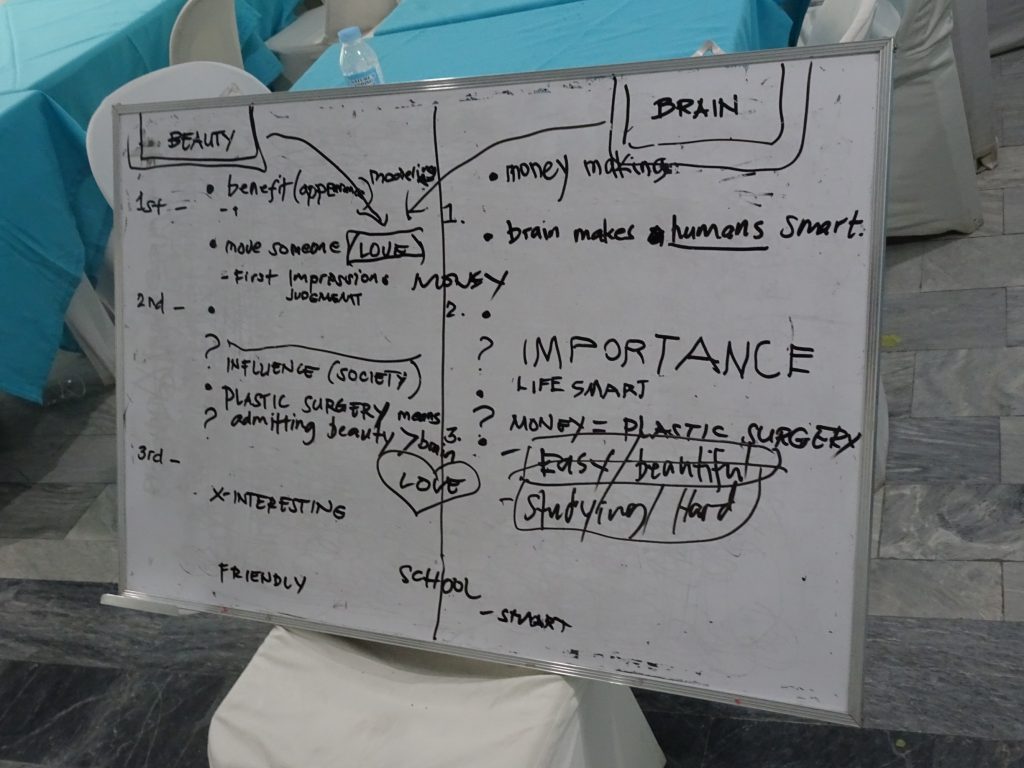 BEAUTY
modeling
1st -
• benefit (appearance
- "
• move someone LOVE
- First Impressions
JUDGMENT
MONEY
2nd -
•
?
INFLUENCE (SOCIETY)
• PLASTIC SURGERY means
? admitting beauty > brain
3rd -
LOVE
X-INTERESTING
FRIENDLY
SCHOOL
BRAIN
• money making
1.
• brain makes humans smart.
2. •
? IMPORTANCE
• LIFE SMART
? MONEY = PLASTIC SURGERY
3. •
- Easy / beautiful
- Studying / Hard
- SMART